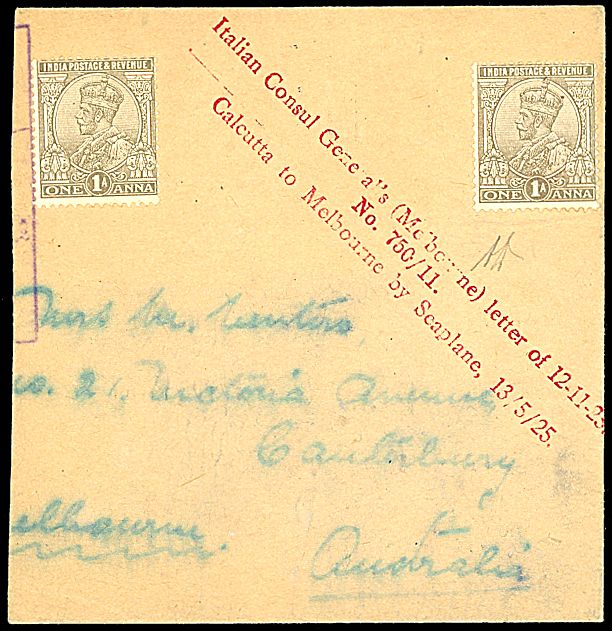 INDIA POSTAGE & REVENUE
ONE 1A ANNA
INDIA POSTAGE & REVENUE
ONE 1A ANNA
Italian Consul General's (Melbourne) letter of 12-11-23,
No. 750/11.
Calcutta to Melbourne by Seaplane, 13/5/25.
Mr.
No. 21, Victoria Avenue,
Canterbury
elbourne.
Australia